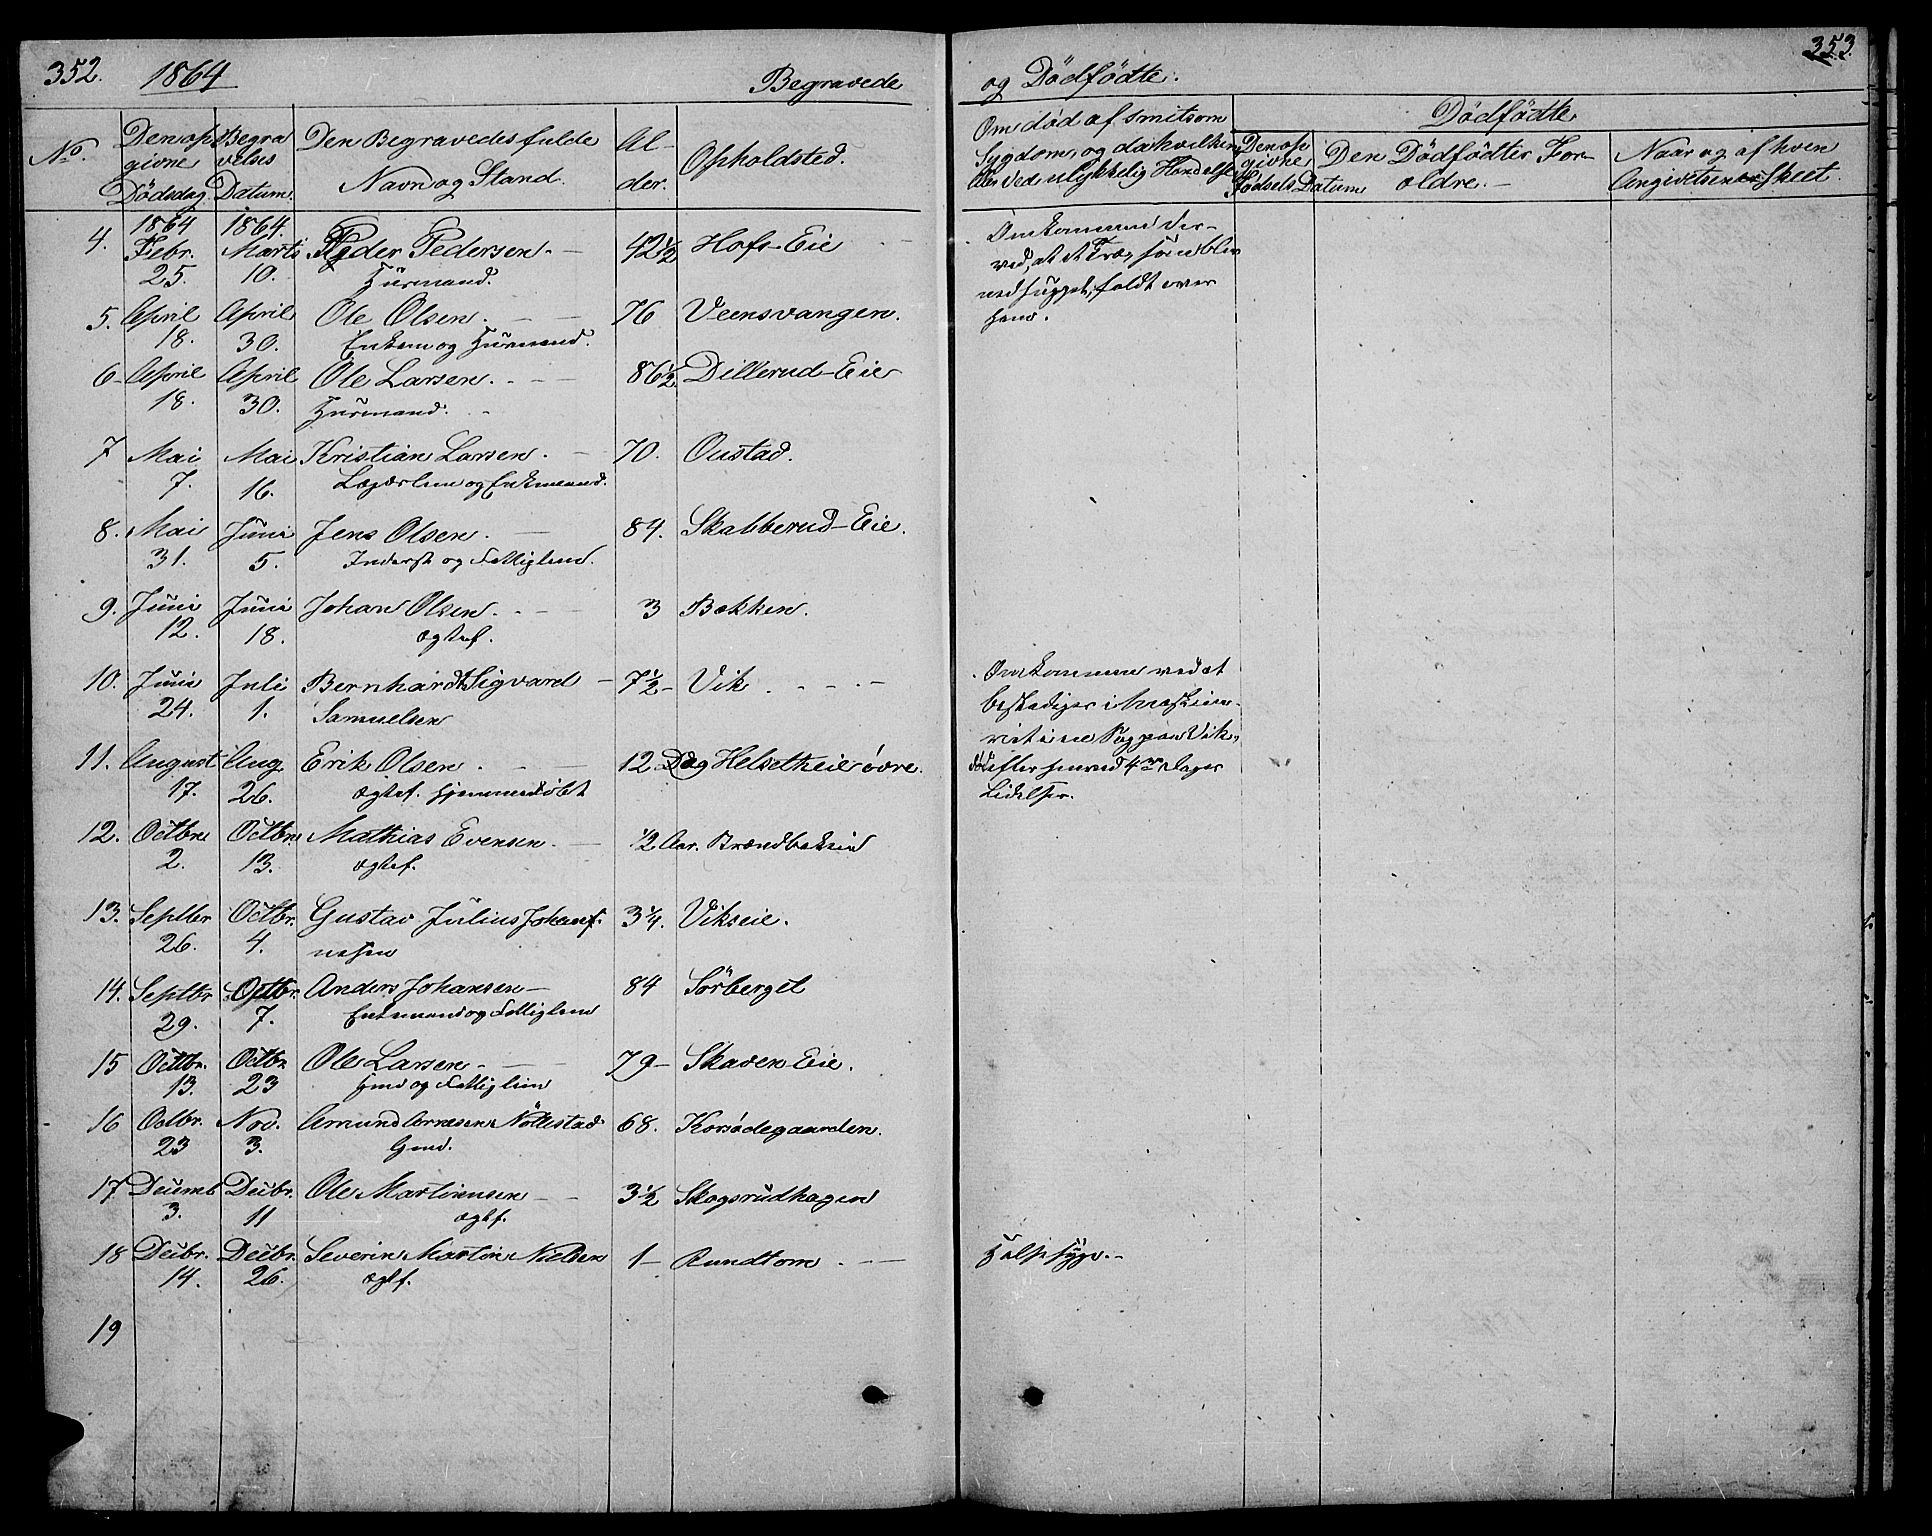 352. 1864 Begravede
No. Den opgivne Dödsdag Begravelses Datum. Den Begravedes fulde Navn og Stand. Alder. Opholdsted.
4. 1864 Febr. 25. 1864. Marts 10. Peder Pedersen. 42½ Hofs-Eie
Huusmand.
5. April 18. April 30. Ole Olsen. 76 Veensvangen.
Enkem og Huusmand.
6 April 18. April 30. Ole Larsen. 86½ Dillerud-Eie
Huusmand.
7 Mai 7. Mai 16. Kristian Larsen. 70. Oustad.
Lægdslem og Enkemand.
8. Mai 31. Juni 5. Jens Olsen. 84. Skabberud-Eie.
Inderst og Fattiglem.
9. Juni 12. Juni 18. Johan Olsen. 3 Bækken.
ægtef.
10. Juni 24. Juli 1. Bernhardt Sigvard 7½ Vik.
Samuelsen
11. August 17. Aug. 26. Erik Olsen. 12 Dag Helsetheie övre.
ægtef. hjemmedöbt
12. Octbr. 2. Octbr. 13. Mathias Evensen. ½ Aar. Brændbækeie
ægtef.
13. Septbr 26. Octbr. 4. Gustav Julius Johan-
nesen 3¼. Vikseie.
14. Septbr 29. Octbr. 7. Anders Johansen 84 Sörberget
Enkemand og Fattiglem
15 Octbr. 13. Octbr 23 Ole Larsen 79 Skaven Eie.
Hmd og Fattiglem
16 Octbr. 23 Nov. 3. Amund Arnesen Nöklestad 68. Korsödegaarden.
Hmd.
17 Decemb 3. Decbr. 11 Ole Martinensen 3½ Skogsrudhagen
ægtf.
18 Decbr. 14. Decbr. 26. Severin Martin Nielsen 1 Rundtom
ægtf.
19
353.
og Dödfödte.
Om död af smitsom Sygdom, og da hvilken eller ved ulykkelig Hændelse
Dödfödte
Den opgivne Födsels Datum Den Dödfödtes Forældre. Naar og af hvem Angivelsen er skeet.
Omkommen der-
ved, at et Træ, som blev
nedhugget, faldt over
ham.
Omkommen ved at
beskadiges i Maskine-
riet i en Sag paa Vik,
död efter henved 4re Dages
Lidelser.
Halssyge.